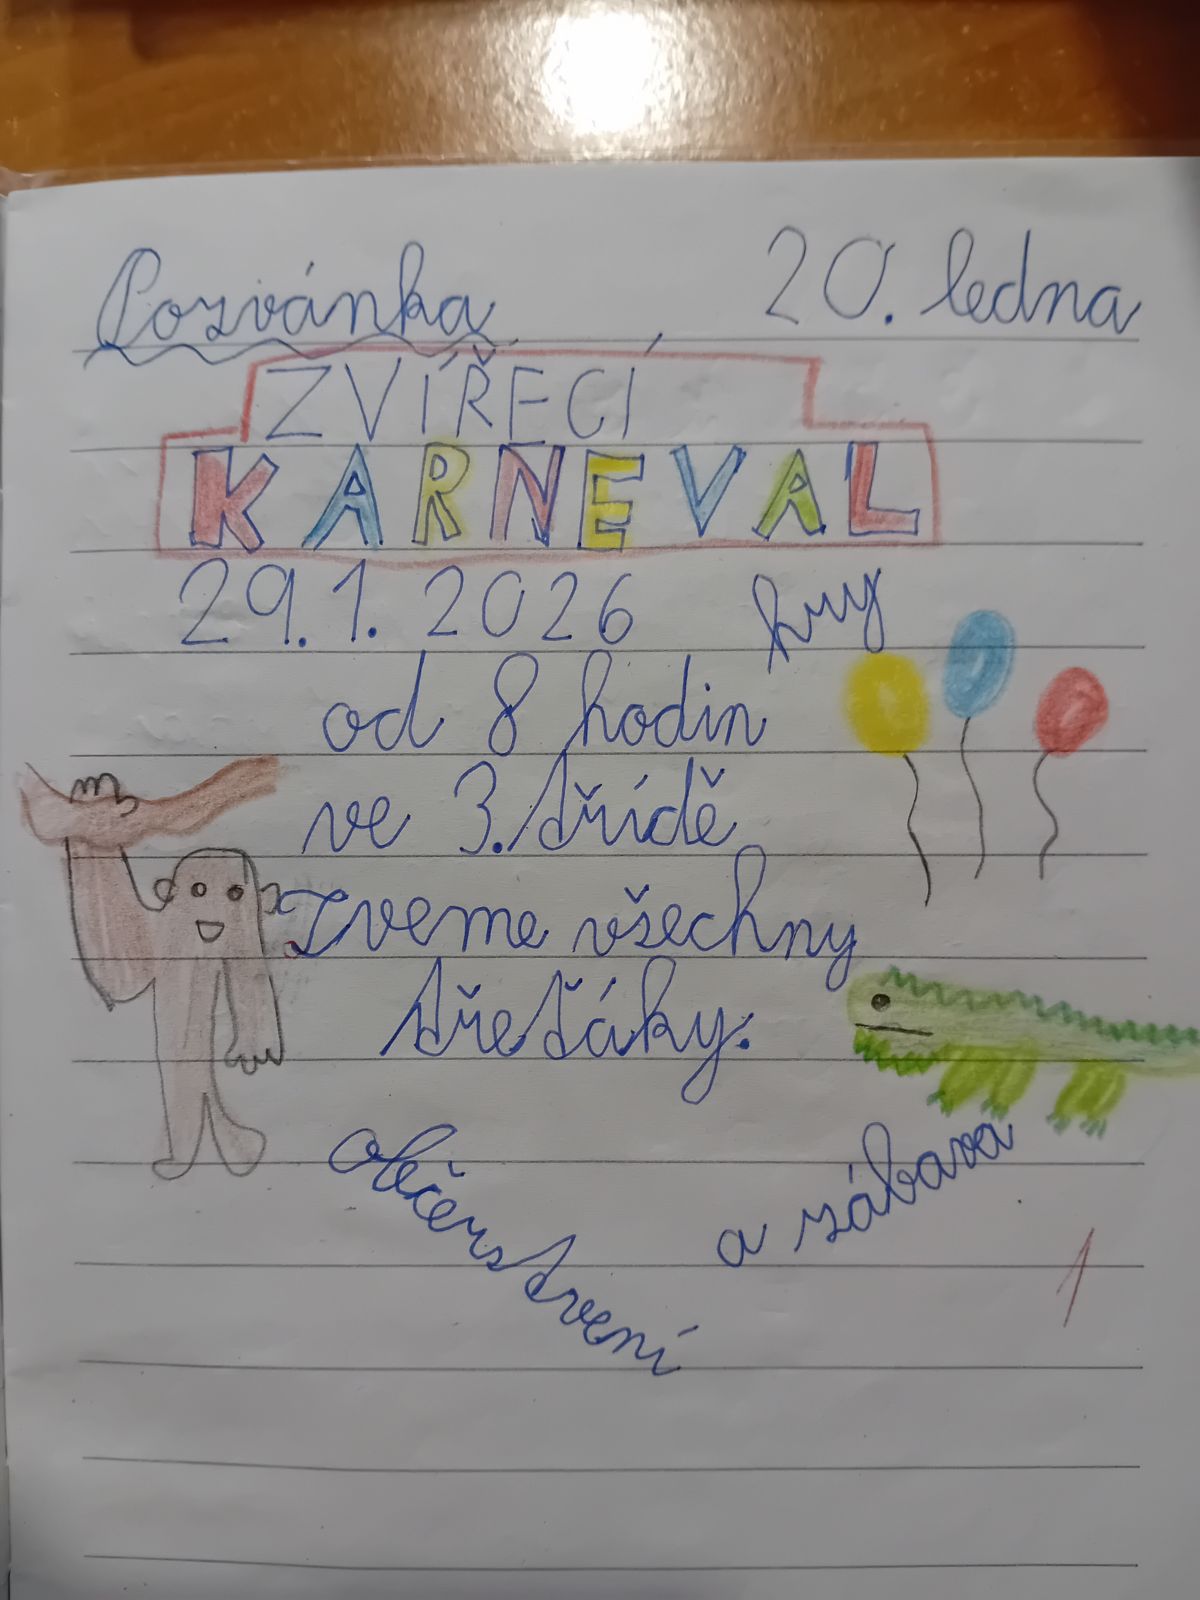 Pozvánka 20. ledna
ZVÍŘECÍ
KARNEVAL
29.1. 2026 hry
od 8 hodin
ve 3. třídě
Zveme všechny
třeťáky.
občerstvení
a zábava
1